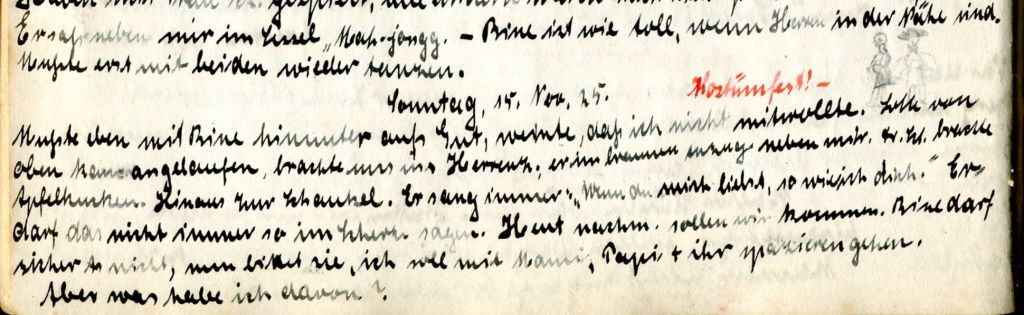 Er saß neben mir im Sessel „Mah-jongg. – Bine ist wie toll, wenn Herren in der Nähe sind.
Mußte erst mit beiden wieder tanzen.
Sonntag, 15. Nov. 25. Kostümfest! –
Mußte eben mit Bine hinunter aufs Gut, weinte, daß ich nicht mitwollte. von
oben kam angelaufen, brachte uns ins Herrenz., er im braunen Anzug neben mir. brachte
Apfelkuchen. Hinaus zur Schaukel. Er sang immer: „Wenn du mich liebst, so wie ich dich." Er
darf das nicht immer so im Scherz sagen. Heut nachm. sollen wir kommen. Bine darf
sicher nicht, nun bittet sie, ich soll mit Mami, Papi + ihr spazieren gehen.
Aber was habe ich davon?